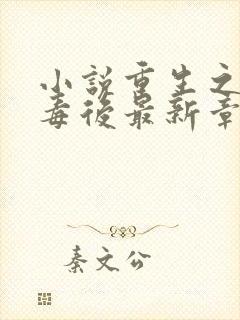 小說重生之
毒後最新章
秦文公